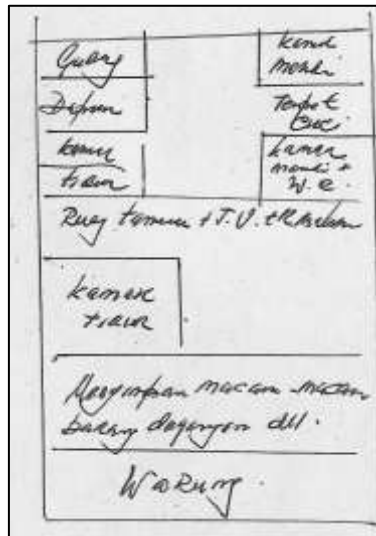 Gudang
Dapur
kamar
tidur
kamar
mandi
Tempat
Cuci
kamar
mandi +
W.C.
Ruang tamu + T.V. + R. Makan
kamar
tidur
macam-macam
barang dagangan dll.
Warung.